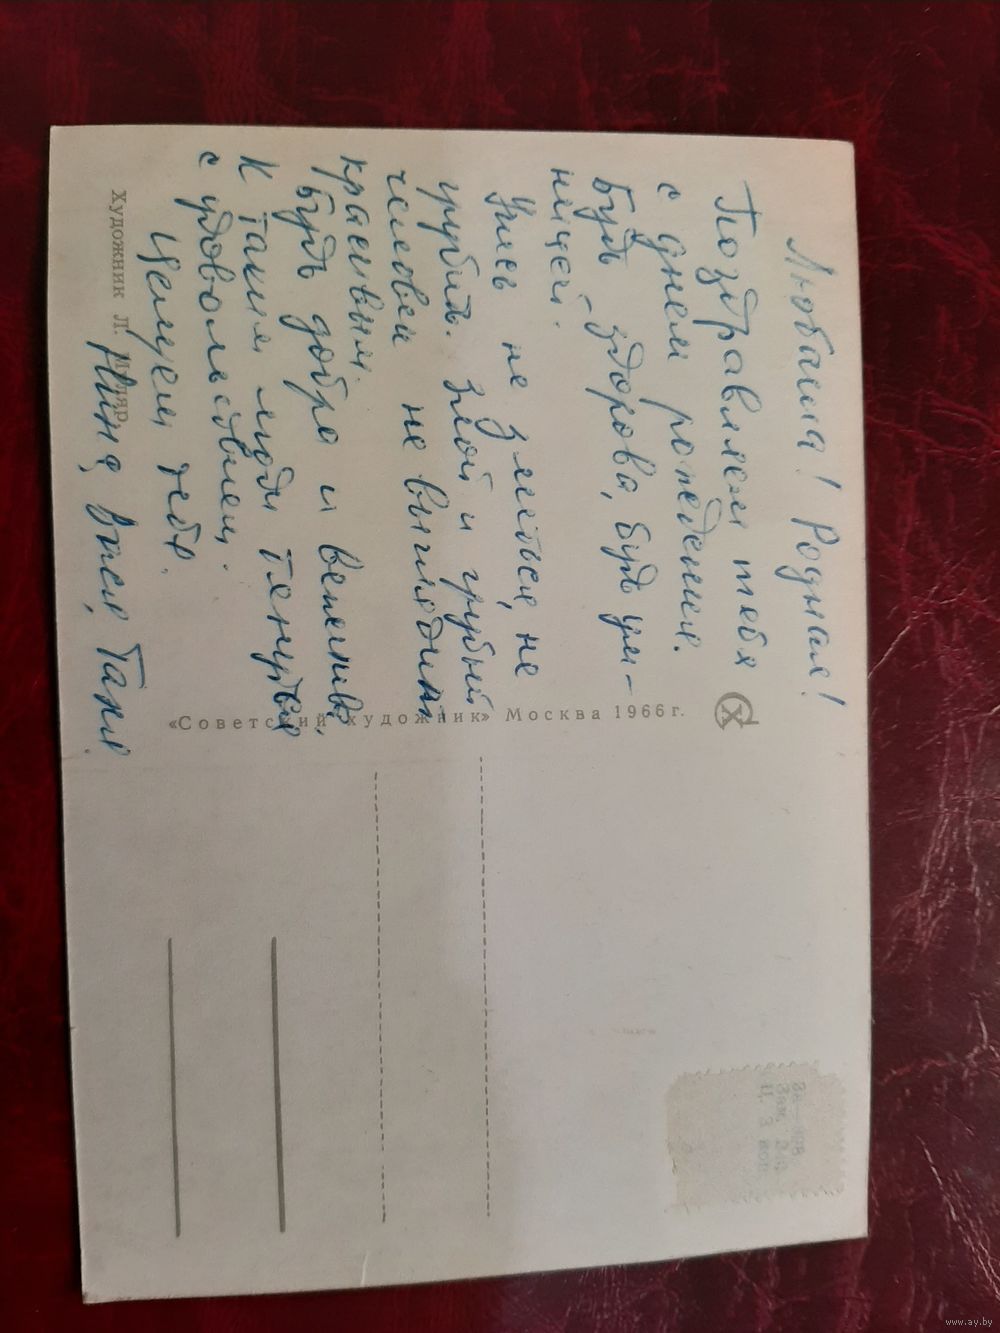 Любаша! Родная!
Поздравляем тебя
с днем рождения.
Будь здорова, будь ум-
ницей.
Учись не злиться, не
грубить. Злой и грубый
человек не выглядит
красивым.
Будь добра и вежлива,
к таким люди тянутся
с удовольствием.
Целуем тебя.
Нина, Витя, Таня.
Художник Л.
«Советский художник» Москва 1966 г.
Ц. 3 коп.
www.ay.by